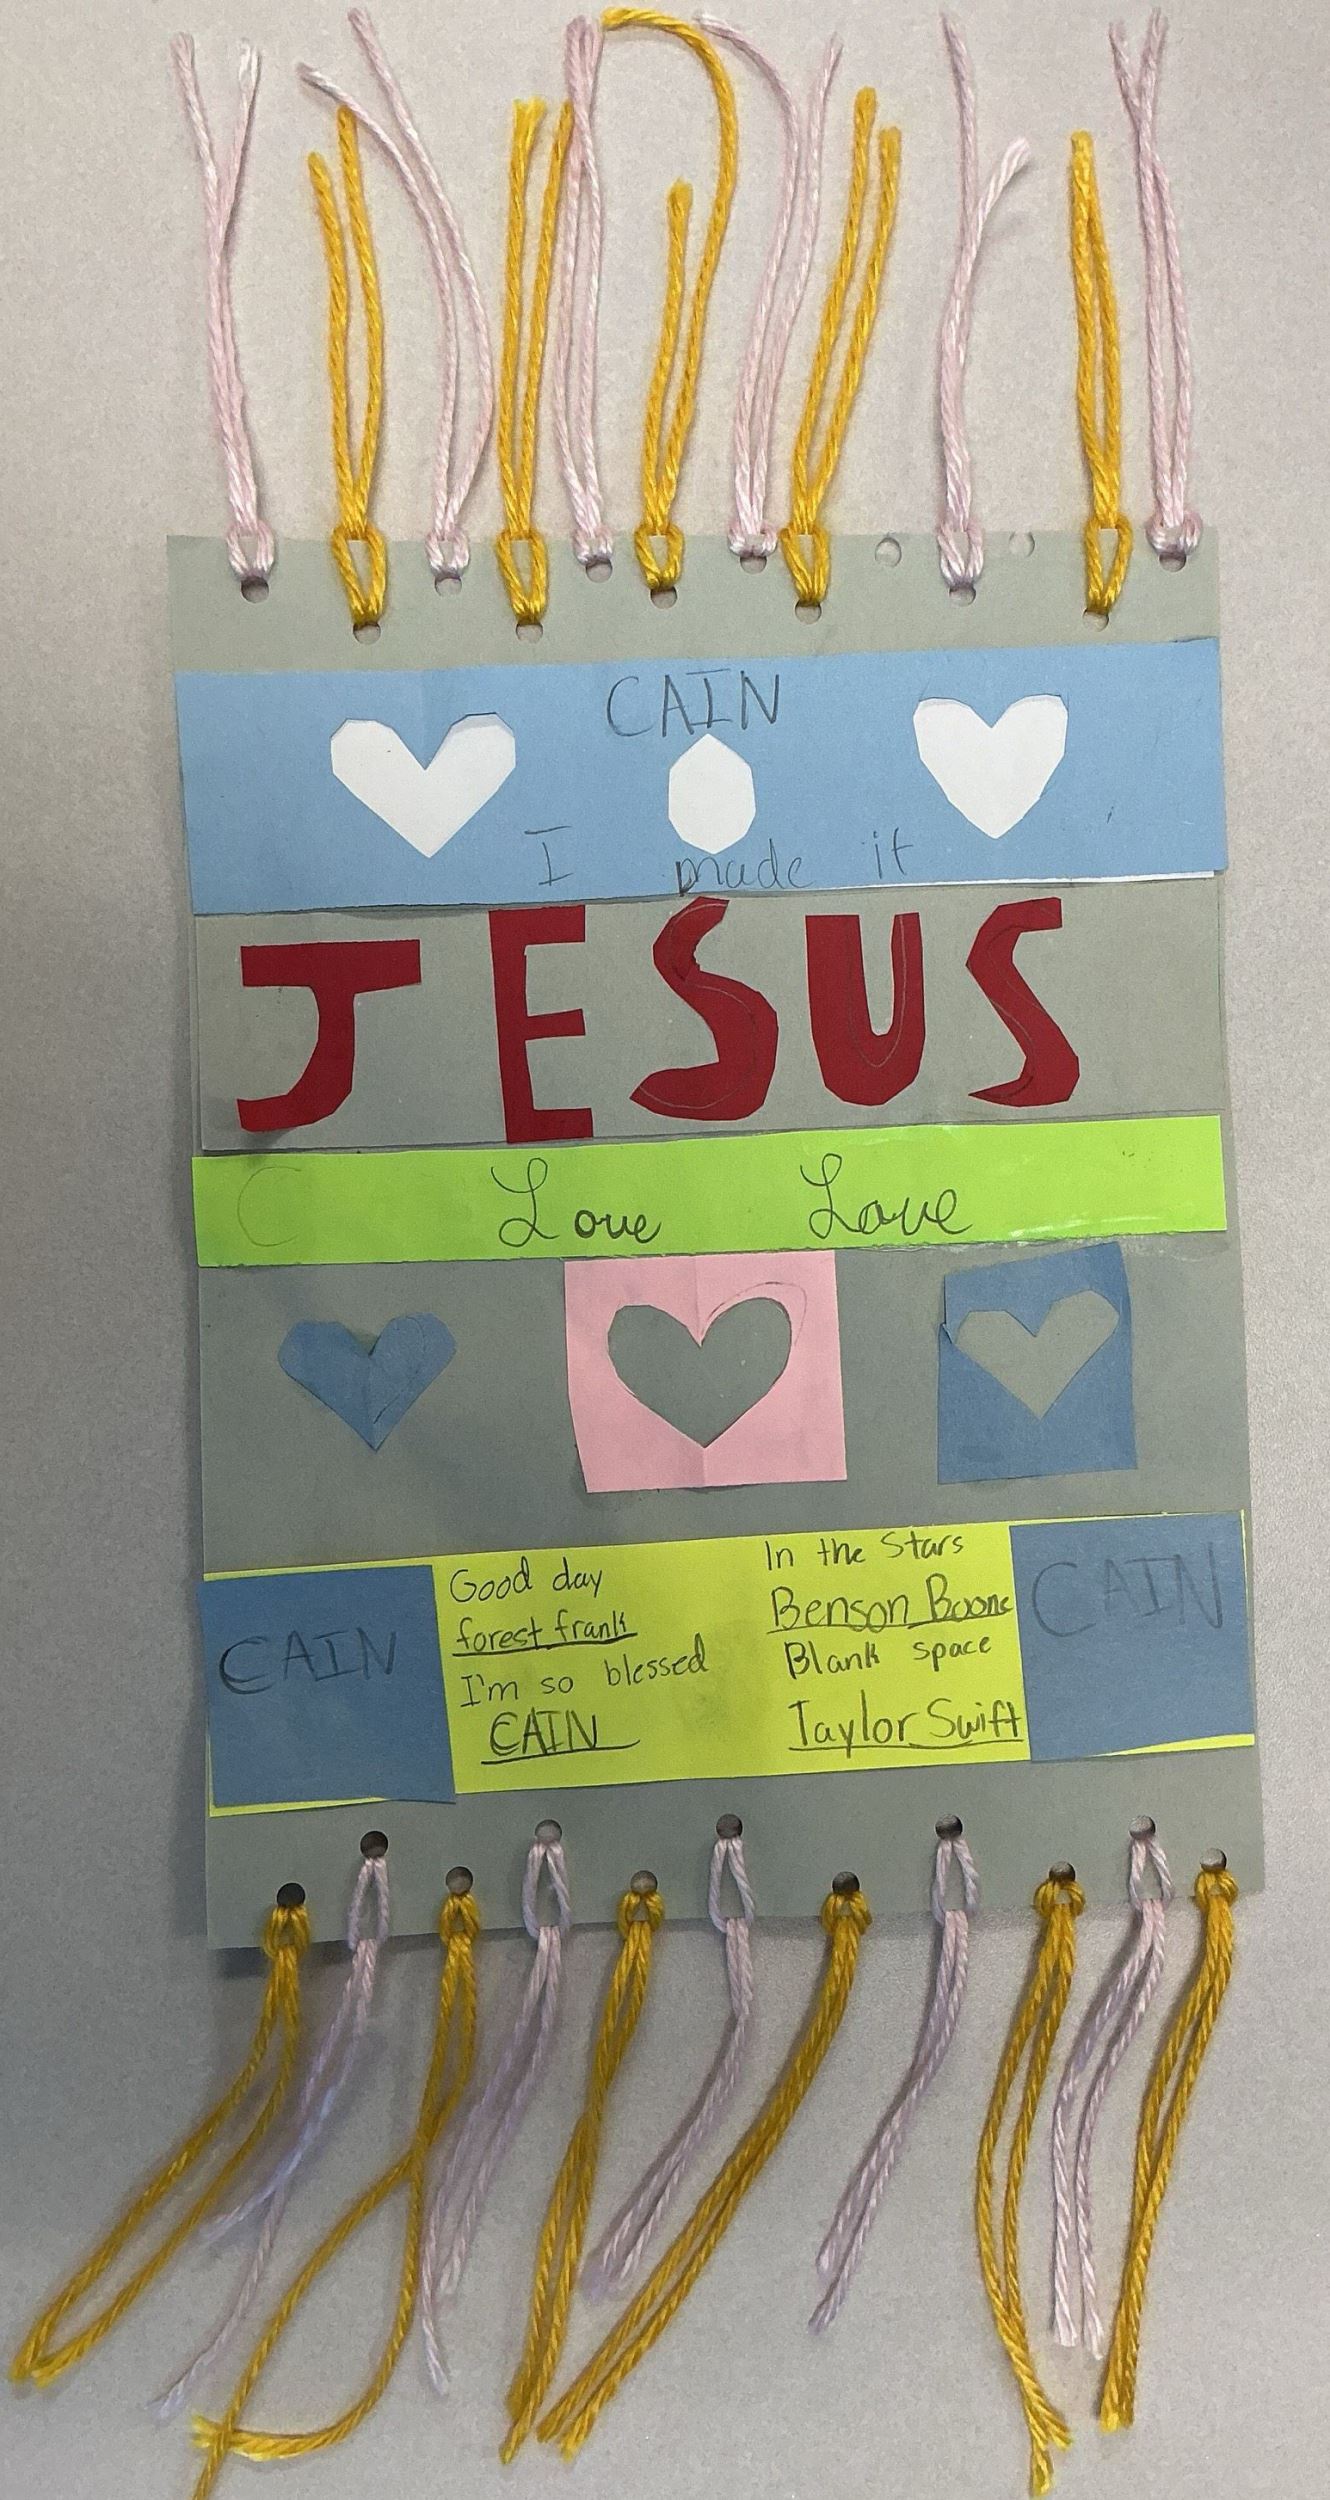 CAIN
I made it
JESUS
C Love Love
Good day
forest frank
I'm so blessed
CAIN
In the Stars
Benson Boone
Blank space
Taylor Swift
CAIN
CAIN